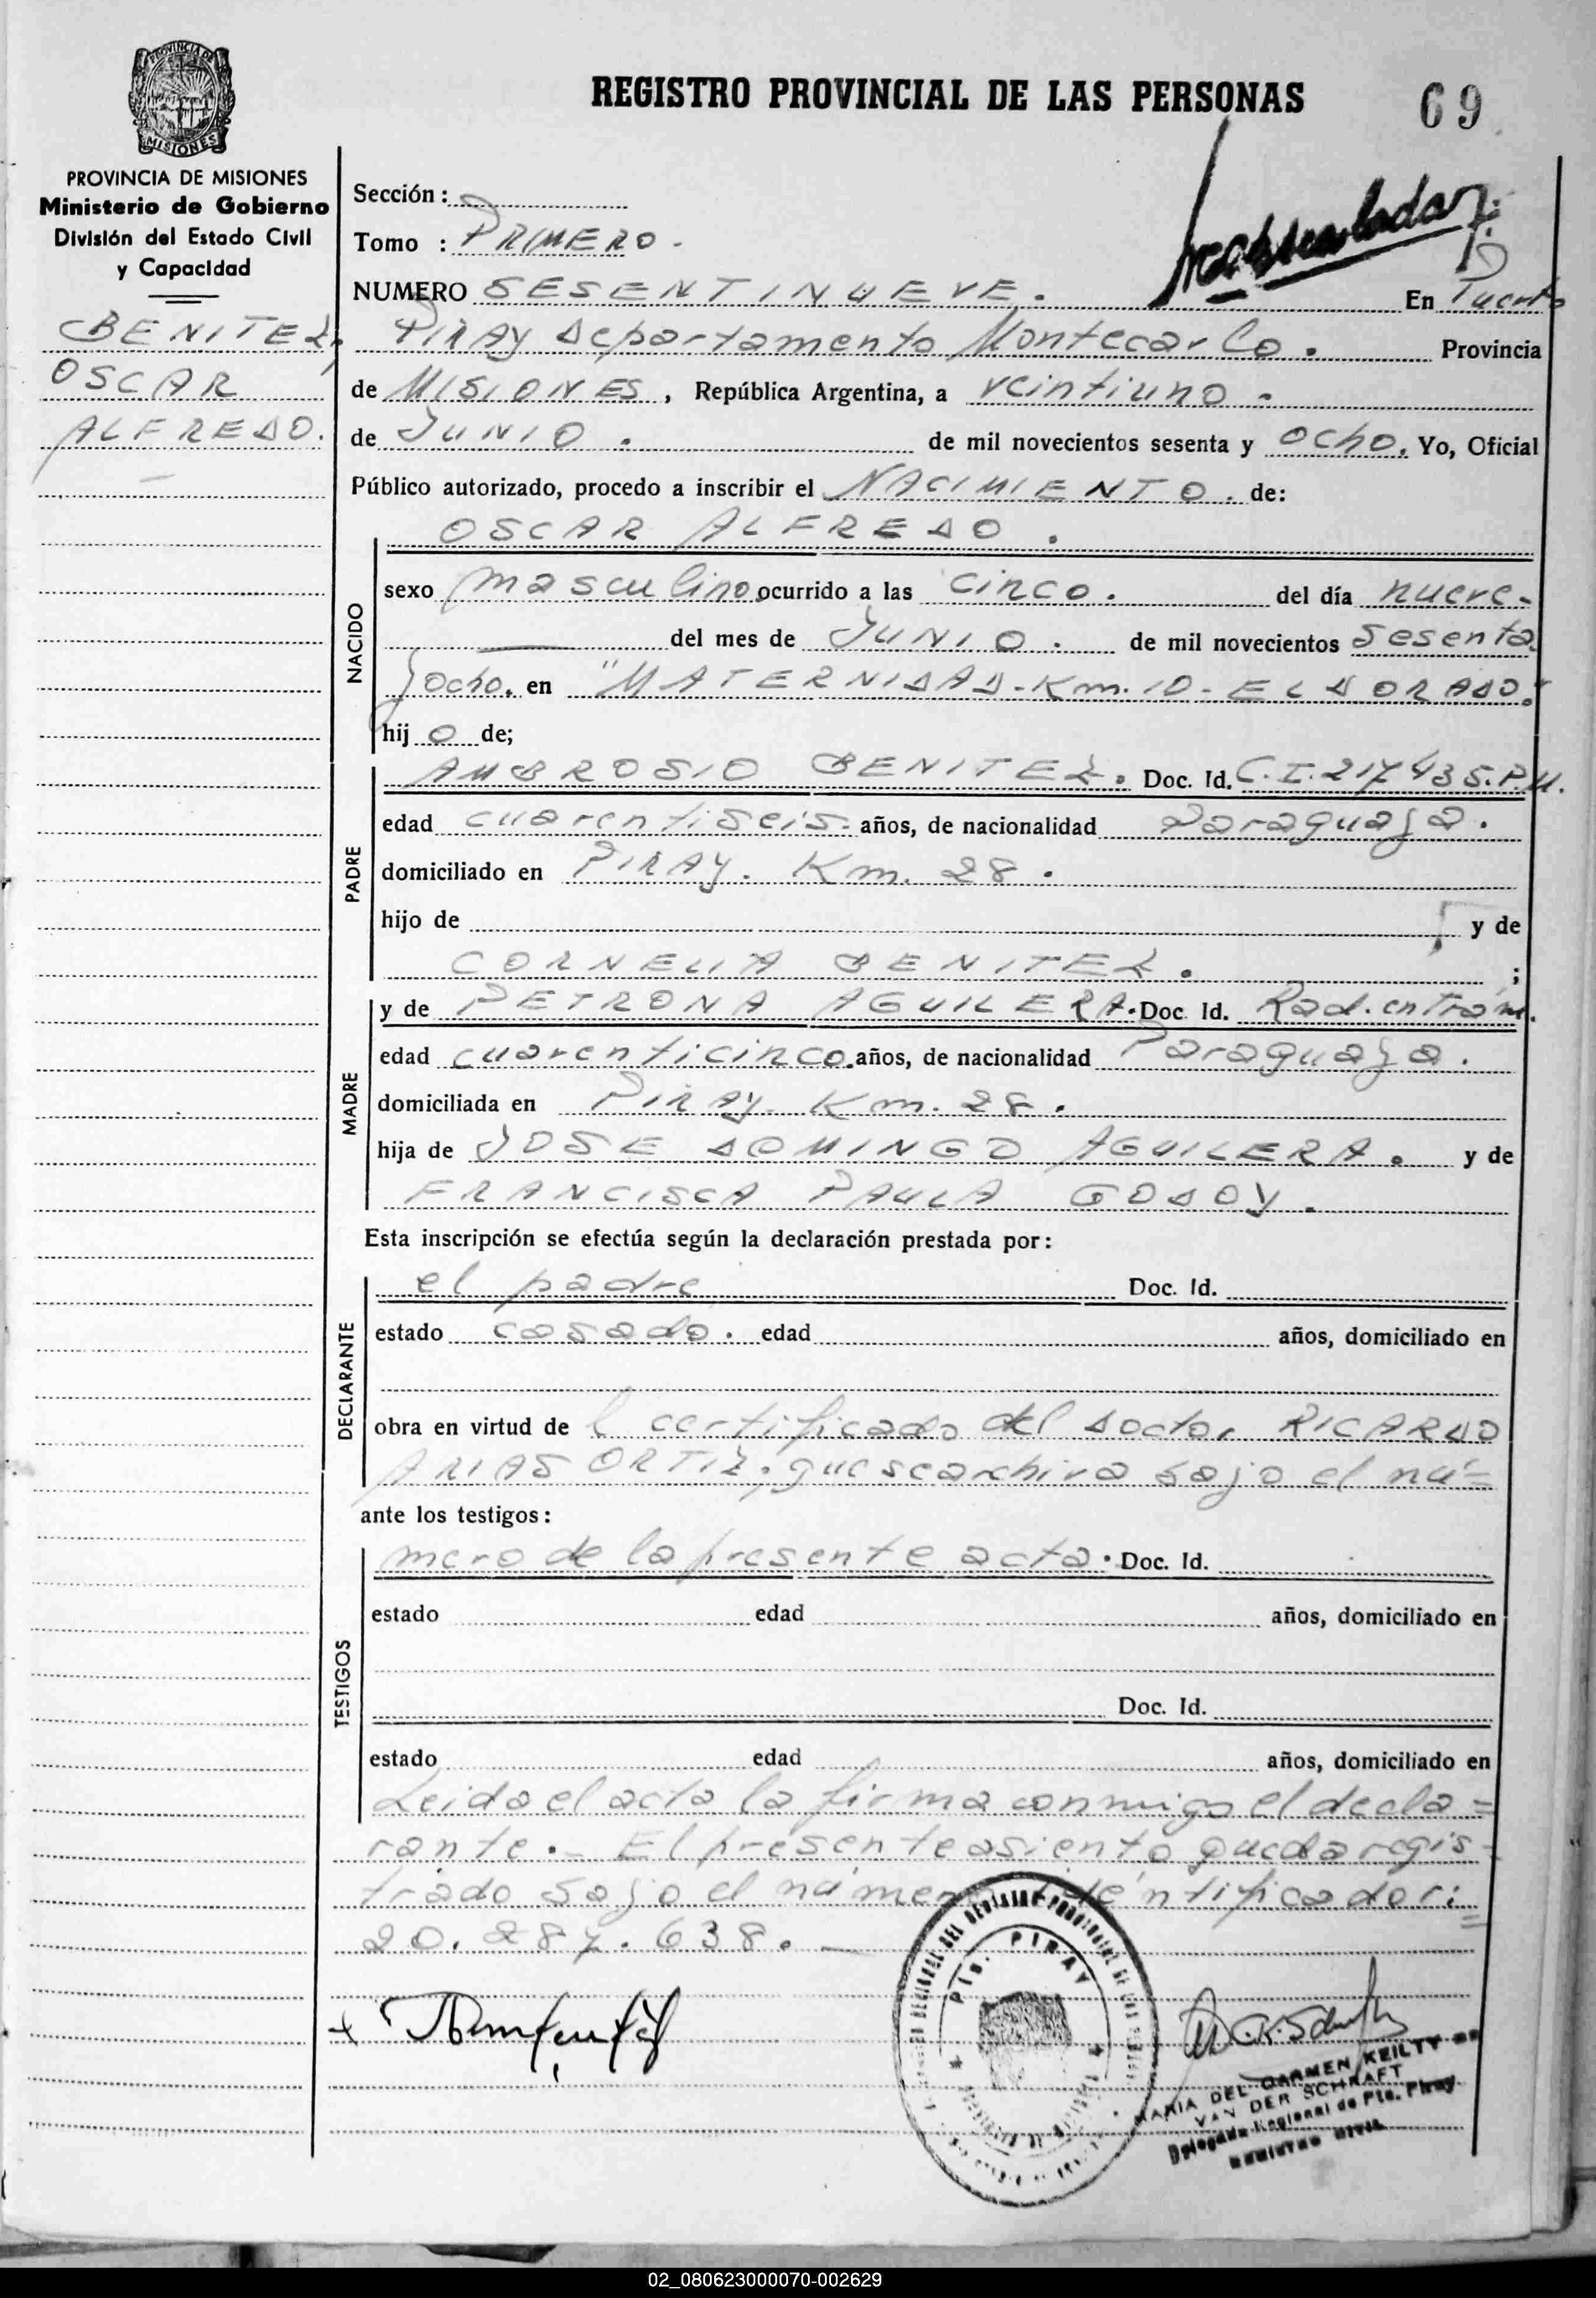 PROVINCIA DE
MISIONES
REGISTRO PROVINCIAL DE LAS PERSONAS
69
PROVINCIA DE MISIONES
Ministerio de Gobierno
División del Estado Civil
y Capacidad
BENITEZ,
OSCAR
ALFREDO.
Sección:
Tomo : PRIMERO.
NUMERO SESENTINUEVE. En Puerto
PIRAY Departamento Montecarlo. Provincia
de MISIONES, República Argentina, a veintiuno.
de JUNIO. de mil novecientos sesenta y ocho. Yo, Oficial
Público autorizado, procedo a inscribir el NACIMIENTO. de:
OSCAR ALFREDO.
NACIDO
sexo masculino ocurrido a las cinco. del día nueve-
del mes de JUNIO. de mil novecientos sesenta
y ocho. en "MATERNIDAD-Km.10-ELDORADO."
hij o de;
PADRE
AMBROSIO BENITEZ. Doc. Id. C.I.217435.P.M.
edad cuarentiseis. años, de nacionalidad Paraguaya.
domiciliado en PIRAY. Km. 28.
hijo de y de
CORNELIA BENITEZ. ;
MADRE
y de PETRONA AGUILERA. Doc. Id. Rad. en Trám.
edad cuarenticinco. años, de nacionalidad Paraguaya.
domiciliada en PIRAY. Km. 28.
hija de JOSE DOMINGO AGUILERA. y de
FRANCISCA PAULA GODOY.
Esta inscripción se efectúa según la declaración prestada por:
DECLARANTE
el padre Doc. Id.
estado casado. edad años, domiciliado en
obra en virtud de l certificado del doctor RICARDO
ARIAS ORTIZ, que se archiva bajo el nú=
ante los testigos:
TESTIGOS
mero de la presente acta. Doc. Id.
estado edad años, domiciliado en
Doc. Id.
estado edad años, domiciliado en
Leida el acta la firma conmigo el decla=
rante.- El presente asiento queda regis-
trado bajo el número identificador:
20.287.638.-
PTO. PIRAY
MARIA DEL CARMEN KEILTY DE
VAN DER SCHRAFT
Delegada Regional de Pto. Piray
REGISTRO CIVIL
02_080623000070-002629